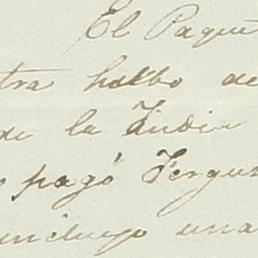 El Paque
tra hallbo de
de la Yndia
pagó Fergus
incluyo una